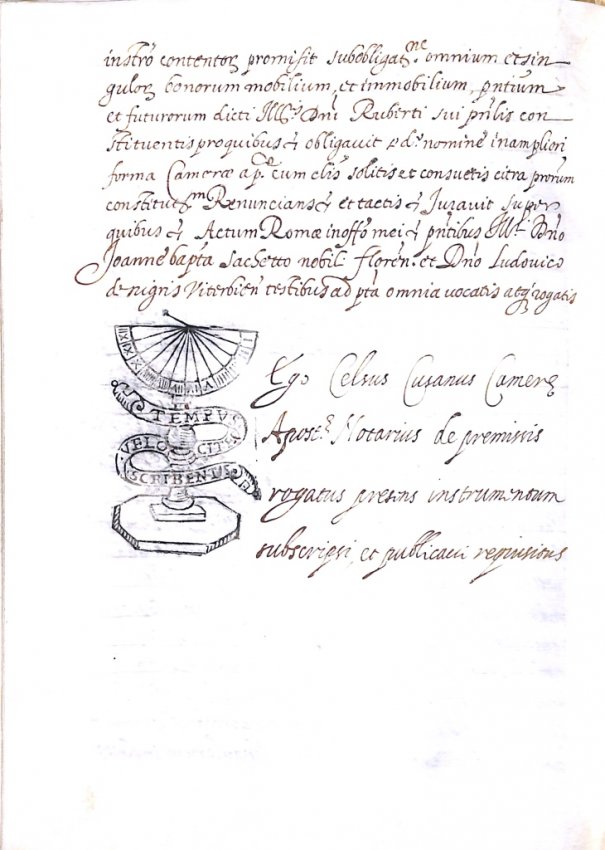 instro contentoꝝ promisit subobligat.ne omnium et sin-
guloꝝ bonorum mobilium, et immobilium, pntium
et futurorum dicti Ill.s Dni Ruberti sui prilis con-
stituentis pro quibus obligavit d.o nomine in ampliori
forma Cameræ ap.ce cum clis solitis et consuetis citra
constitut.m Renuncians et tactis Juravit super
quibus Actum Romæ in offo mei pntibus Ill.i Dno
Joanne bapta Sachetto nobil. floren. et Dno Ludovico
de nigris Viterbien testibus ad pta omnia vocatis atq rogatis
Ego Celsus Cusanus Cameræ
Apost.ce Notarius de premissis
rogatus presens instrumentum
subscripsi et publicavi requisitus
TEMPVS
VELOCITE
SCRIBENTIS